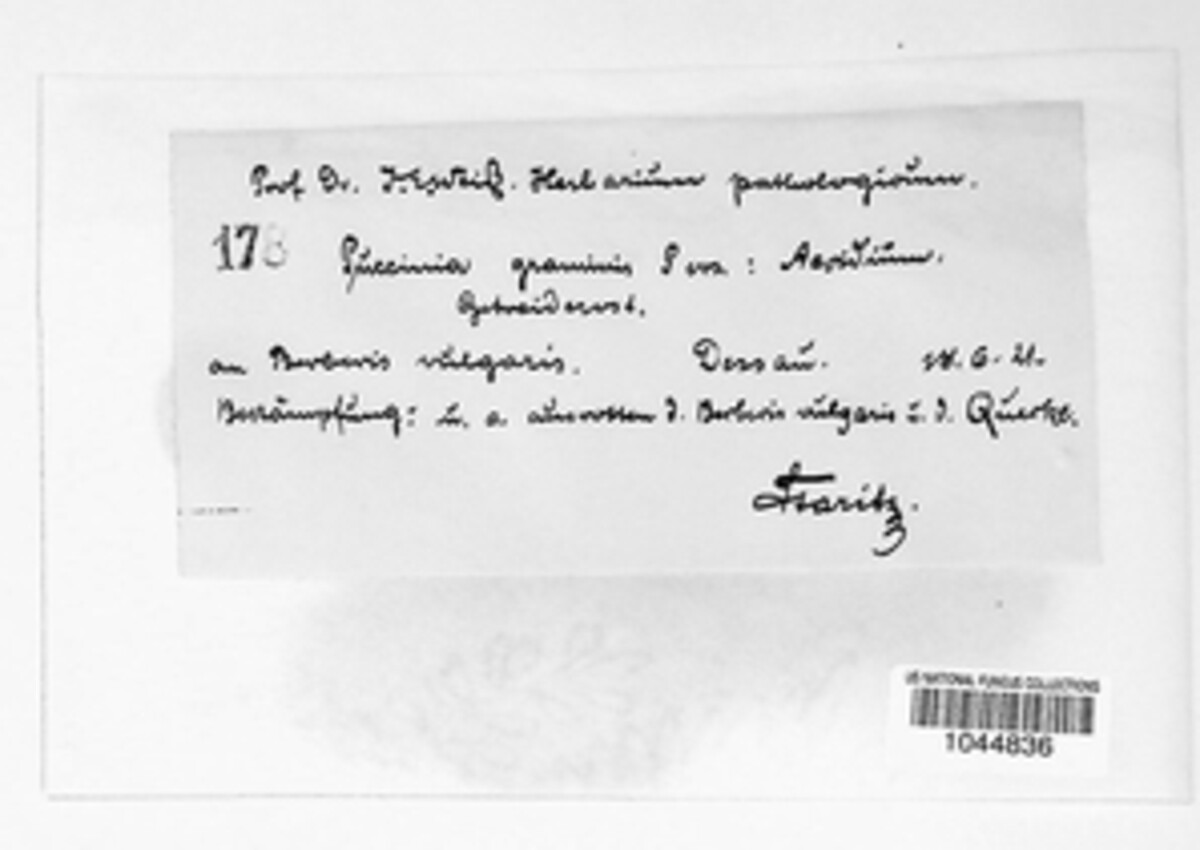 Prof Dr. J. E. Weiß. Herbarium pathologicum.
178 Puccinia graminis Pers : Aecidium.
Getreiderost.
an Berberis vulgaris. Dessau. 6. 21.
Bekämpfung: u. a. ausrotten d. Berberis vulgaris u. d. Quecke.
Staritz.
US NATIONAL FUNGUS COLLECTIONS
1044836